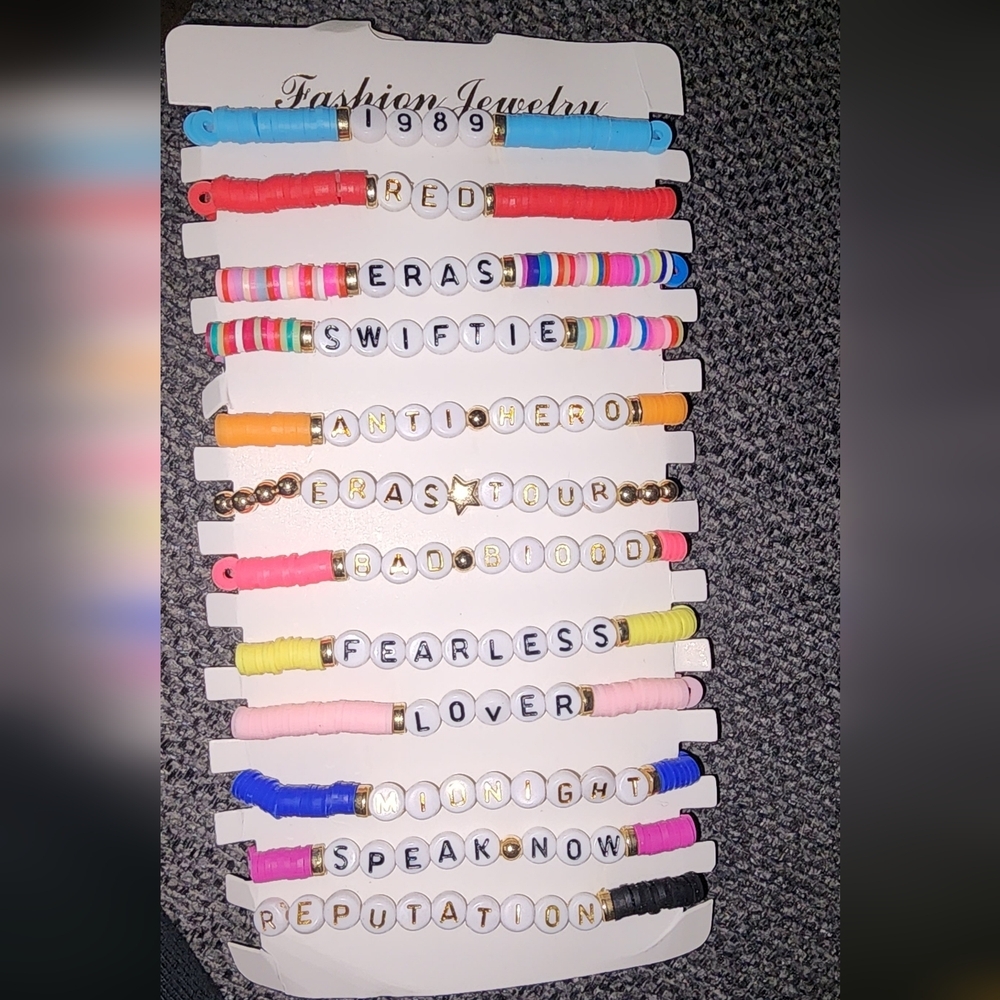 Fashion Jewelry
1989
RED
ERAS
SWIFTIE
ANTI HERO
ERAS TOUR
BAD BIOOD
FEARLESS
LOVER
MIDNIGHT
SPEAK NOW
REPUTATION